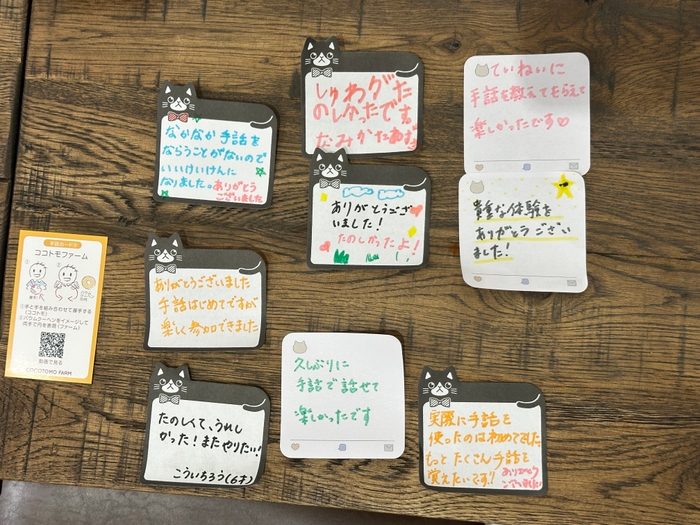 なかなか手話を
ならうことがないので
いいけいけんに
なりました。ありがとう
ございました
しゅわグた
のしかったです
ていねいに
手話を教えてもらえて
楽しかったです♡
ありがとうござ
いました!
たのしかったよ!
貴重な体験を
ありがとうござい
ました!
手話カード
ココトモファーム
①手と手を組み合わせて握手をする
(ココトモ)
②バウムクーヘンをイメージして
両手で円を表現(ファーム)
動画で見る
COCOTOMO FARM
ありがとうございました
手話はじめてですが
楽しく参加できました
久しぶりに
手話で話せて
楽しかったです
たのしくて、うれし
かった!またやりたい!
こういちろう(6才)
実際に手話を
使ったのは初めてでした
もっとたくさん手話を
覚えたいです!!ありがとう
ございました